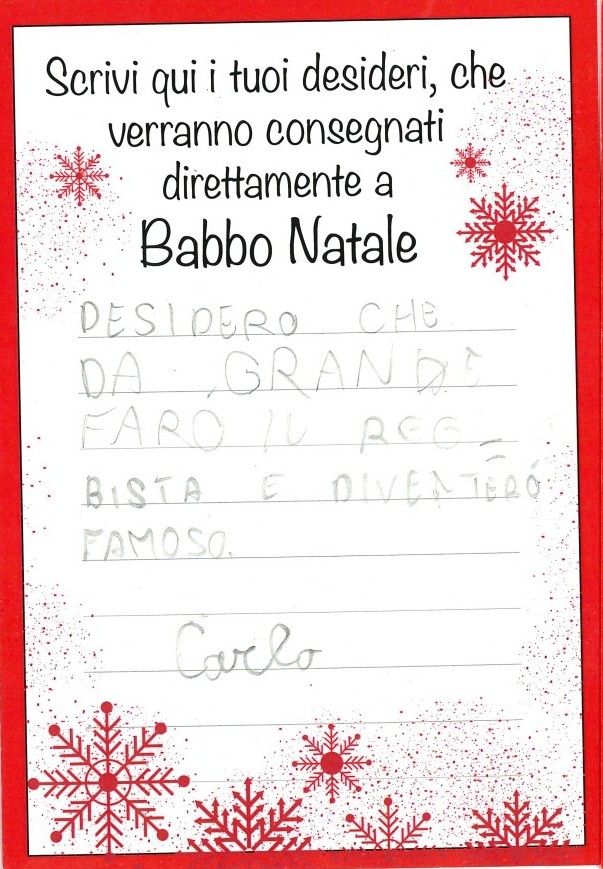 Scrivi qui i tuoi desideri, che
verranno consegnati
direttamente a
Babbo Natale
DESIDERO CHE
DA GRANDE
FARO IL REG-
BISTA E DIVENTERÓ
FAMOSO.
Carlo